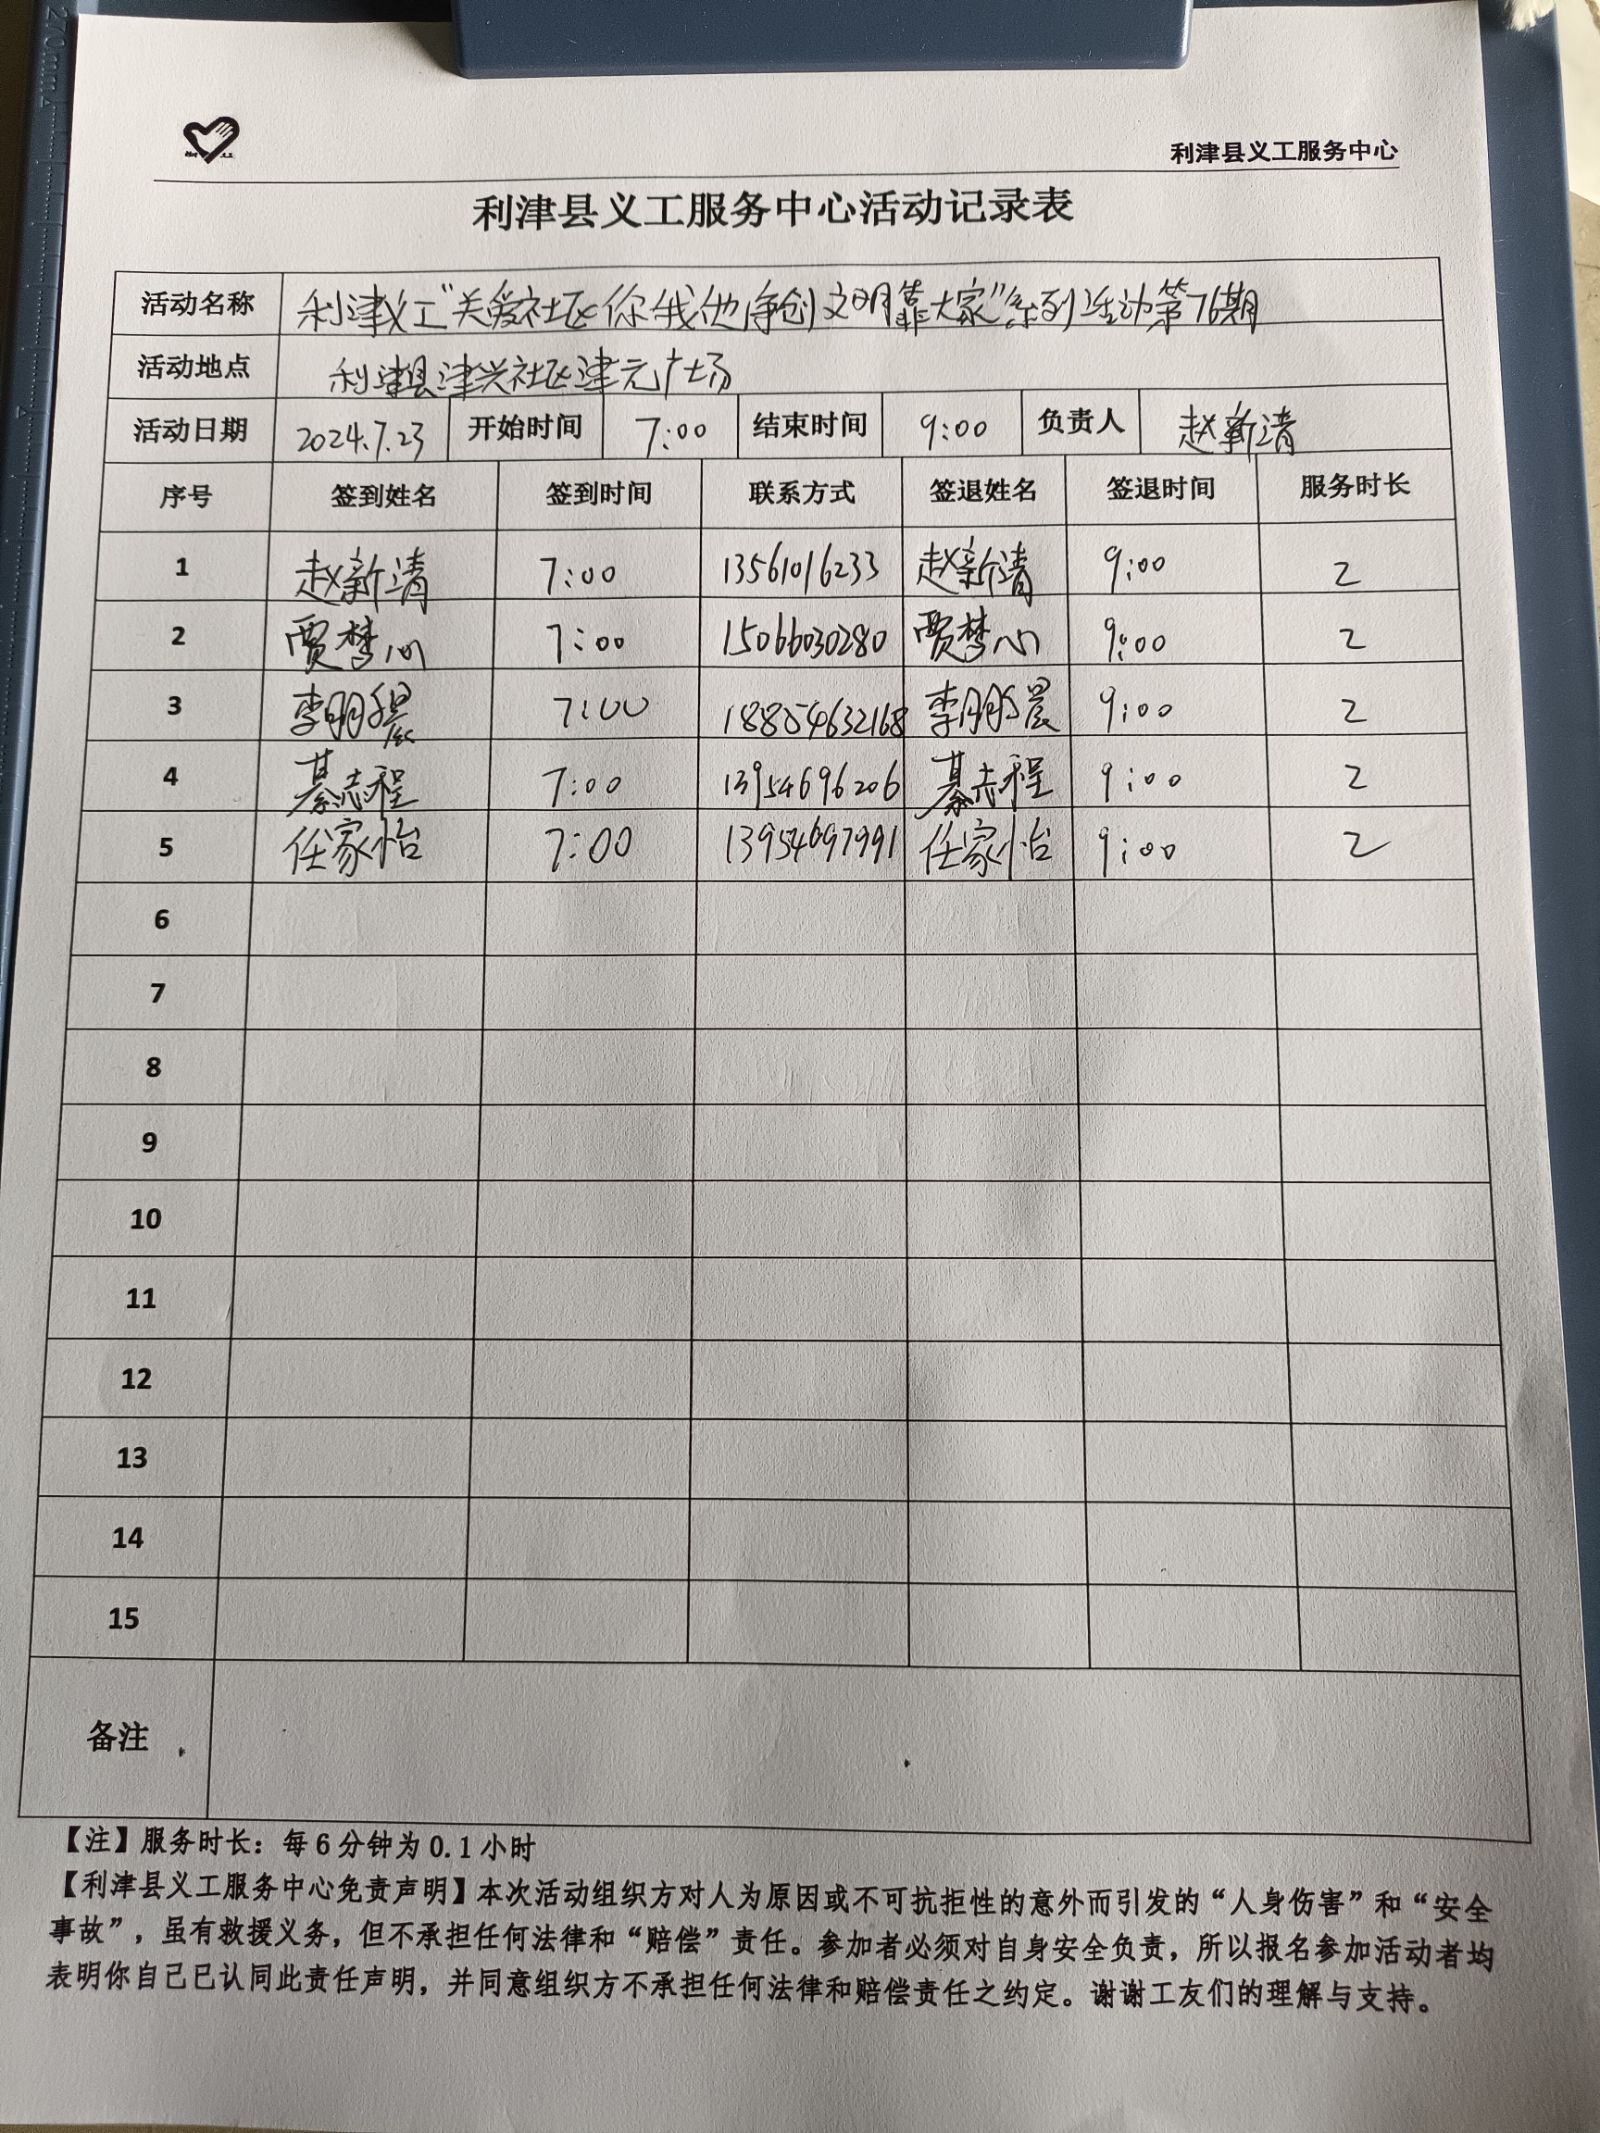 利津县义工服务中心
利津县义工服务中心活动记录表
活动名称 利津义工“关爱社区你我他争创文明靠大家”系列活动第76期
活动地点 利津县津兴社区津元广场
活动日期 2024.7.23 开始时间 7:00 结束时间 9:00 负责人 赵新清
序号 签到姓名 签到时间 联系方式 签退姓名 签退时间 服务时长
1 赵新清 7:00 13561016233 赵新清 9:00 2
2 贾梦心 7:00 15066030280 贾梦心 9:00 2
3 7:00 18854632168 9:00 2
4 綦志程 7:00 13954696206 綦志程 9:00 2
5 任家怡 7:00 13954697991 任家怡 9:00 2
6
7
8
9
10
11
12
13
14
15
备注
【注】服务时长：每6分钟为0.1小时
【利津县义工服务中心免责声明】本次活动组织方对人为原因或不可抗拒性的意外而引发的“人身伤害”和“安全
事故”，虽有救援义务，但不承担任何法律和“赔偿”责任。参加者必须对自身安全负责，所以报名参加活动者均
表明你自己已认同此责任声明，并同意组织方不承担任何法律和赔偿责任之约定。谢谢工友们的理解与支持。